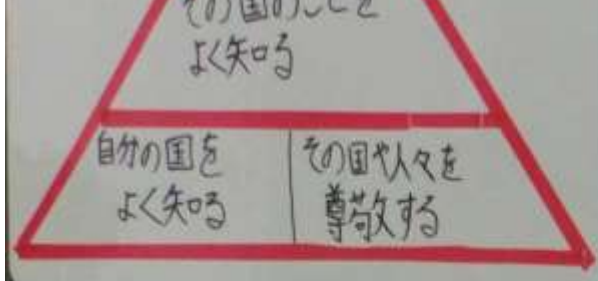 その国のことを
よく知る
自分の国を
よく知る
その国や人々を
尊敬する